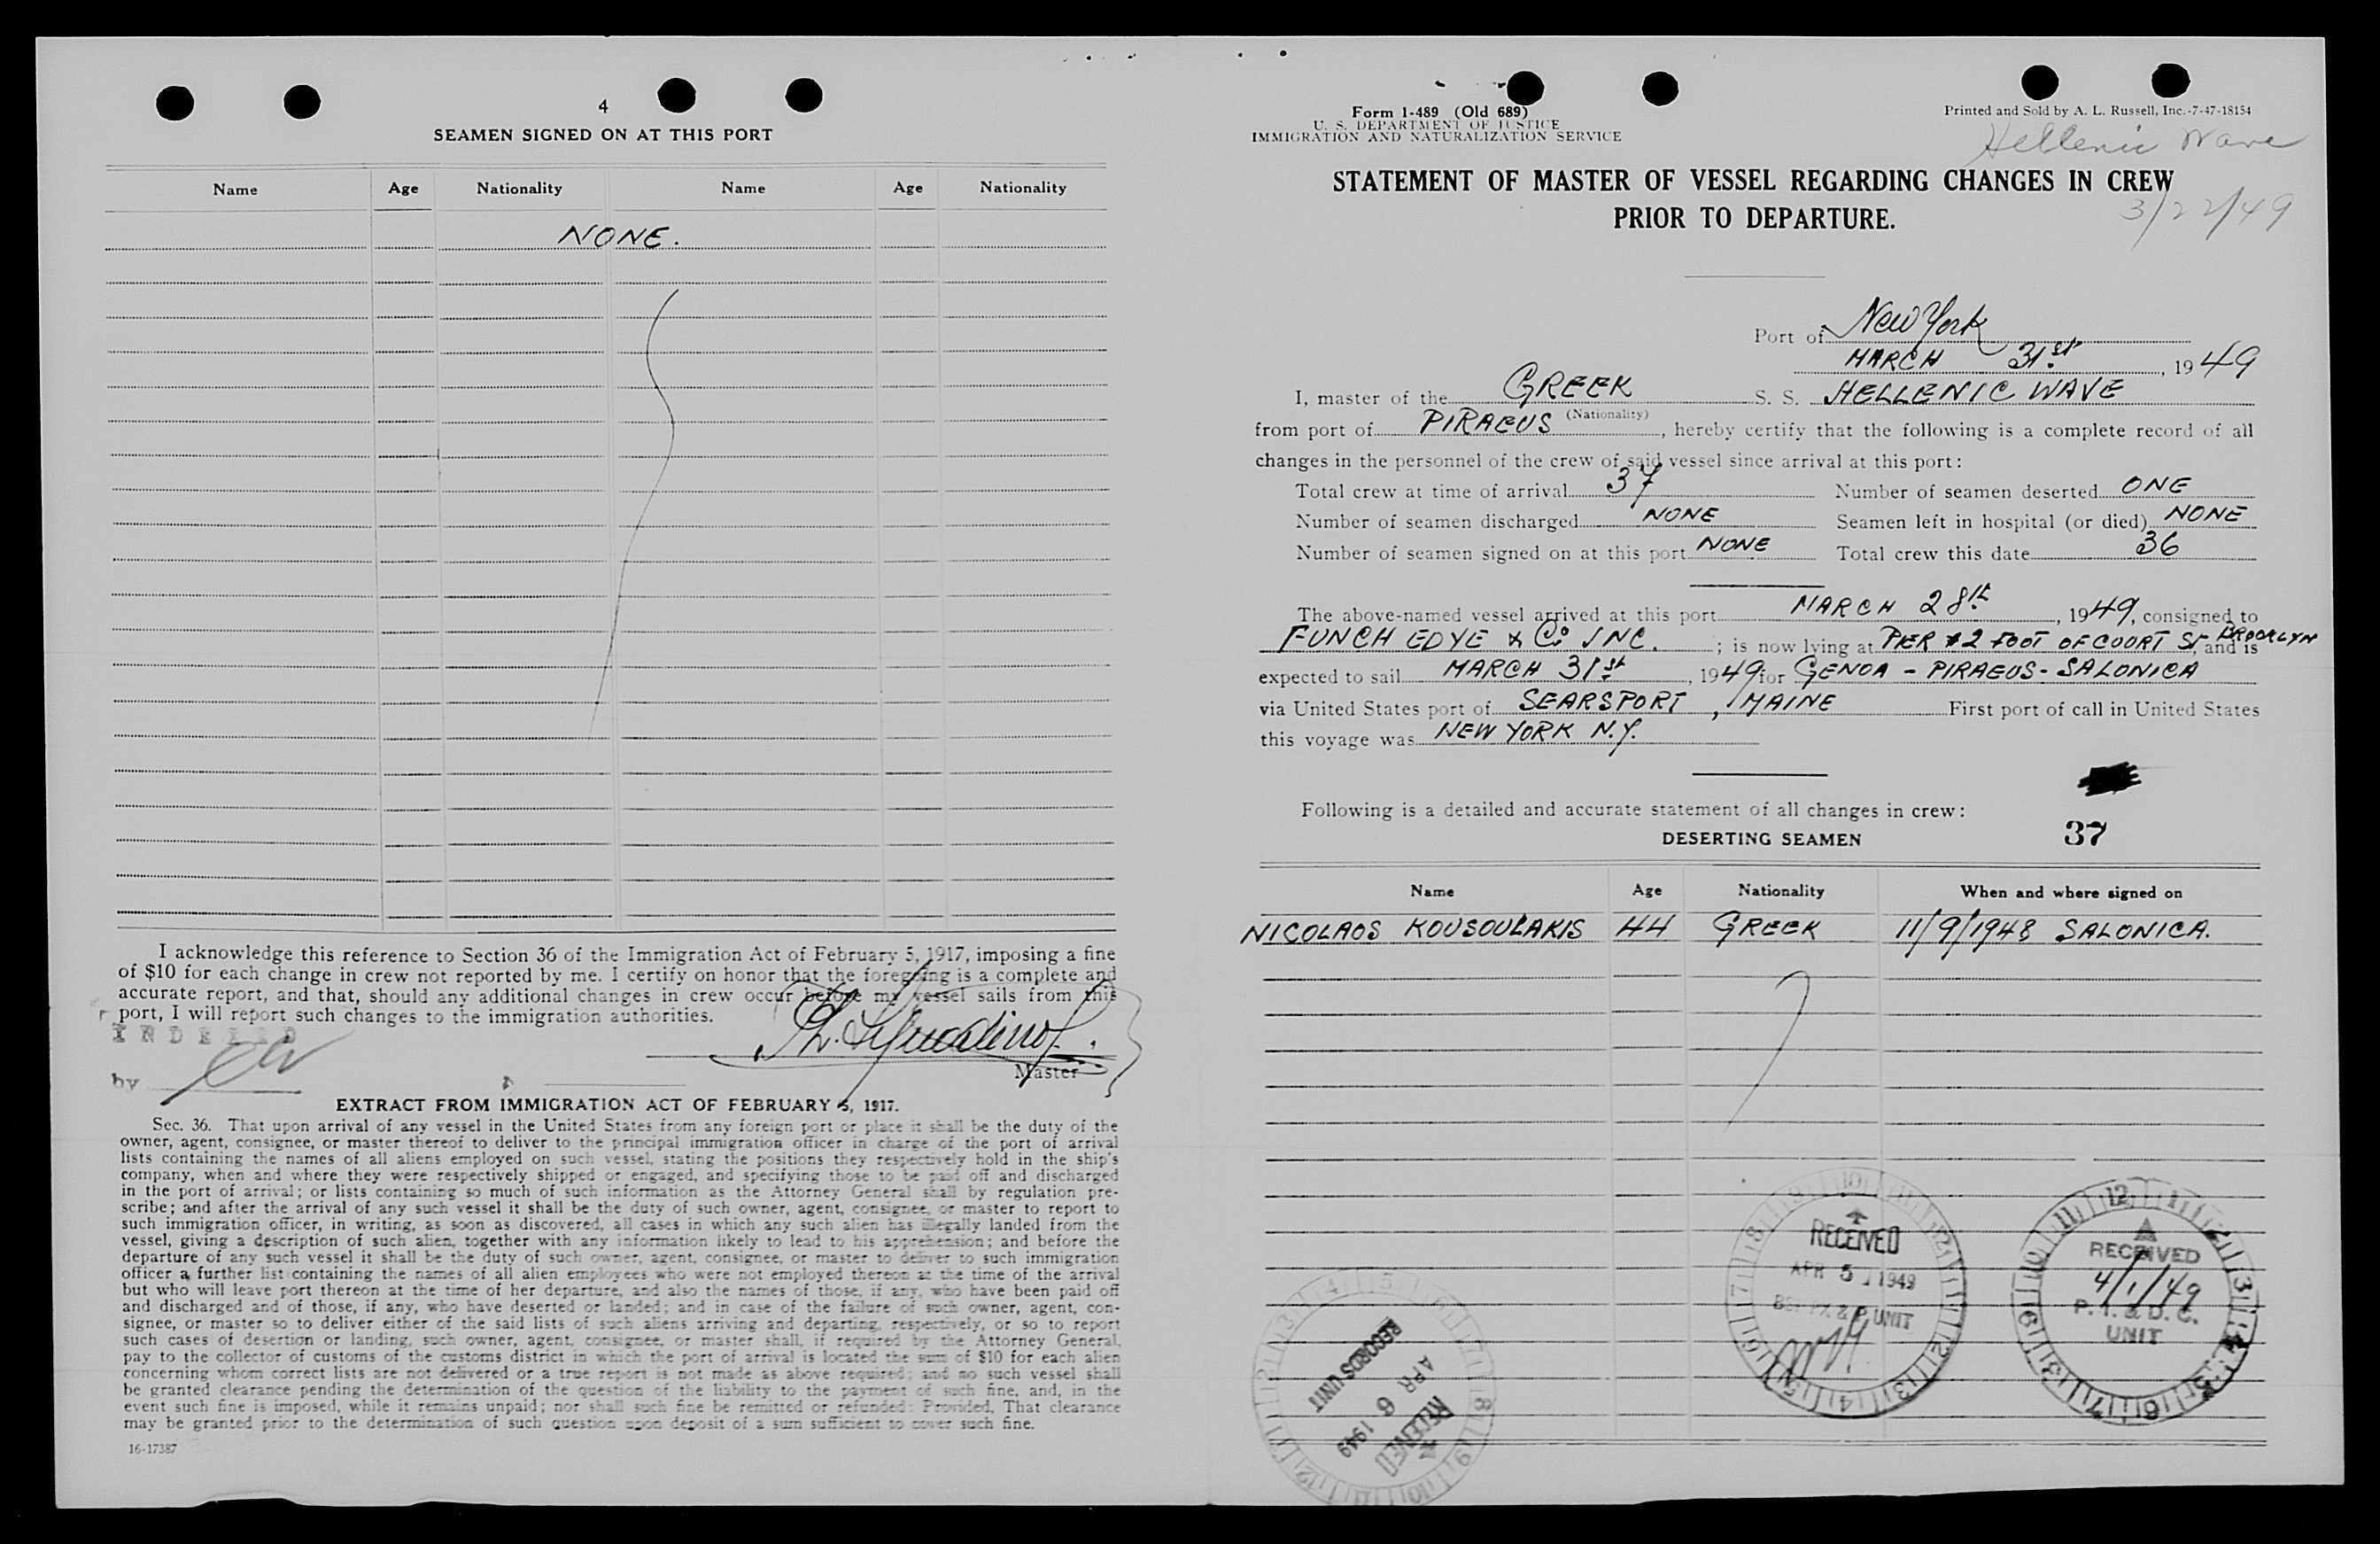 4
SEAMEN SIGNED ON AT THIS PORT
Name Age Nationality Name Age Nationality
NONE.
I acknowledge this reference to Section 36 of the Immigration Act of February 5, 1917, imposing a fine
of $10 for each change in crew not reported by me. I certify on honor that the foregoing is a complete and
accurate report, and that, should any additional changes in crew occur before my vessel sails from this
port, I will report such changes to the immigration authorities.
INDEXED
by
Master
EXTRACT FROM IMMIGRATION ACT OF FEBRUARY 5, 1917.
Sec. 36. That upon arrival of any vessel in the United States from any foreign port or place it shall be the duty of the
owner, agent, consignee, or master thereof to deliver to the principal immigration officer in charge of the port of arrival
lists containing the names of all aliens employed on such vessel, stating the positions they respectively hold in the ship's
company, when and where they were respectively shipped or engaged, and specifying those to be paid off and discharged
in the port of arrival; or lists containing so much of such information as the Attorney General shall by regulation pre-
scribe; and after the arrival of any such vessel it shall be the duty of such owner, agent, consignee, or master to report to
such immigration officer, in writing, as soon as discovered, all cases in which any such alien has illegally landed from the
vessel, giving a description of such alien, together with any information likely to lead to his apprehension; and before the
departure of any such vessel it shall be the duty of such owner, agent, consignee, or master to deliver to such immigration
officer a further list containing the names of all alien employees who were not employed thereon at the time of the arrival
but who will leave port thereon at the time of her departure, and also the names of those, if any, who have been paid off
and discharged and of those, if any, who have deserted or landed; and in case of the failure of such owner, agent, con-
signee, or master so to deliver either of the said lists of such aliens arriving and departing, respectively, or so to report
such cases of desertion or landing, such owner, agent, consignee, or master shall, if required by the Attorney General,
pay to the collector of customs of the customs district in which the port of arrival is located the sum of $10 for each alien
concerning whom correct lists are not delivered or a true report is not made as above required; and no such vessel shall
be granted clearance pending the determination of the question of the liability to the payment of such fine, and, in the
event such fine is imposed, while it remains unpaid; nor shall such fine be remitted or refunded: Provided, That clearance
may be granted prior to the determination of such question upon deposit of a sum sufficient to cover such fine.
16-17387
Form I-489 (Old 689)
U. S. DEPARTMENT OF JUSTICE
IMMIGRATION AND NATURALIZATION SERVICE
Printed and Sold by A. L. Russell, Inc.-7-47-18154
Hellenic Wave
STATEMENT OF MASTER OF VESSEL REGARDING CHANGES IN CREW
PRIOR TO DEPARTURE.
3/22/49
Port of New York
MARCH 31st, 1949
I, master of the GREEK S. S. HELLENIC WAVE
(Nationality)
from port of PIRAEUS, hereby certify that the following is a complete record of all
changes in the personnel of the crew of said vessel since arrival at this port:
Total crew at time of arrival 37 Number of seamen deserted ONE
Number of seamen discharged NONE Seamen left in hospital (or died) NONE
Number of seamen signed on at this port NONE Total crew this date 36
The above-named vessel arrived at this port MARCH 28th, 1949, consigned to
FUNCH EDYE & Co INC. ; is now lying at PIER #2 FOOT OF COURT ST, BROOKLYN and is
expected to sail MARCH 31st, 1949 for GENOA - PIRAEUS - SALONICA
via United States port of SEARSPORT, MAINE First port of call in United States
this voyage was NEW YORK N.Y.
Following is a detailed and accurate statement of all changes in crew:
DESERTING SEAMEN 37
Name Age Nationality When and where signed on
NICOLAOS KOUSOULAKIS 44 GREEK 11/9/1948 SALONICA.
RECEIVED
APR 5 1949
UNIT
RECEIVED
4/1/49
P. I. & D. C.
UNIT
RECEIVED
APR 6 1949
RECORDS UNIT